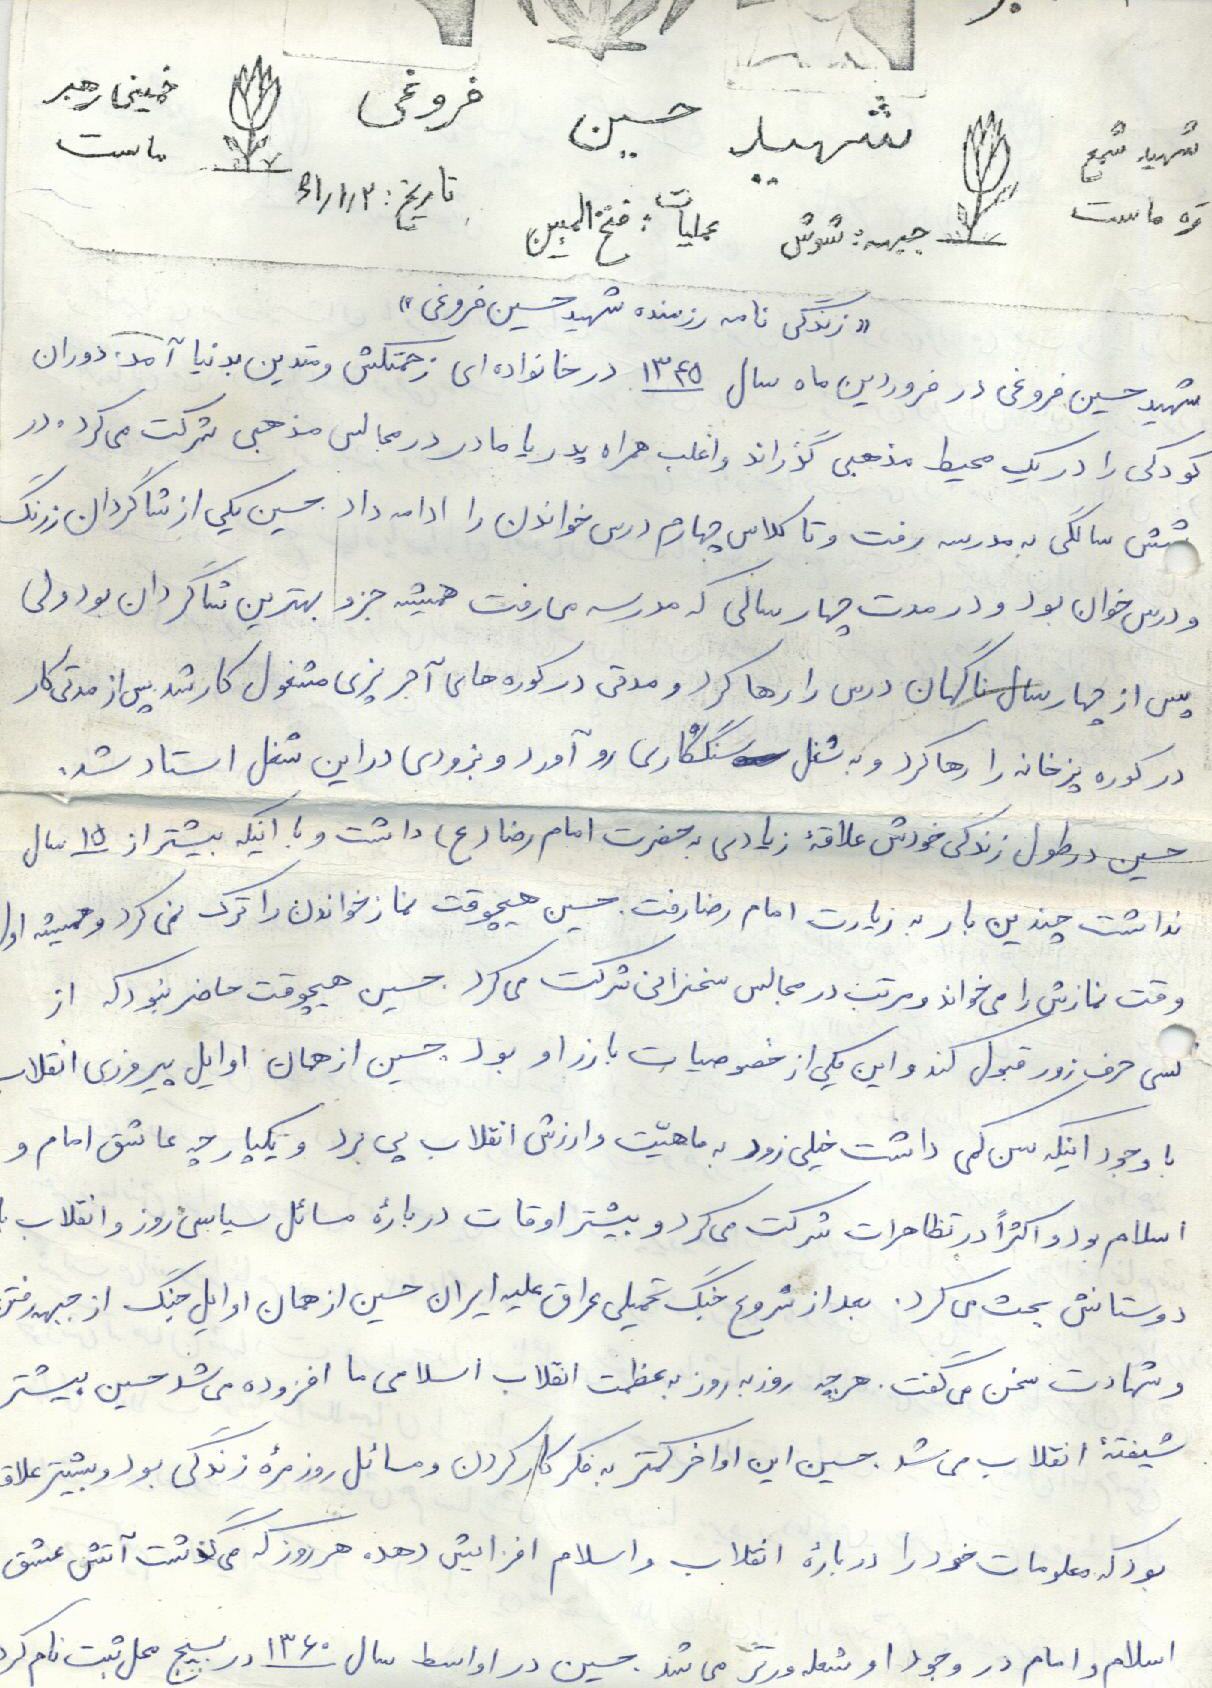 شهید شمع
ماست
شهید حسین فروغی
خمینی رهبر
ماست
جبهه: شوش عملیات: فتح المبین تاریخ: ۶۱/۱/۲
« زندگی نامه رزمنده شهید حسین فروغی »
شهید حسین فروغی در فروردین ماه سال ۱۳۴۵ در خانواده ای زحمتکش و متدین بدنیا آمد. دوران
کودکی را در یک محیط مذهبی گذراند و اغلب همراه پدر یا مادر در مجالس مذهبی شرکت می کرد. در
شش سالگی به مدرسه رفت و تا کلاس چهارم درس خواندن را ادامه داد. حسین یکی از شاگردان زرنگ
و درس خوان بود و در مدت چهار سالی که مدرسه می رفت همیشه جزو بهترین شاگردان بود ولی
پس از چهار سال ناگهان درس را رها کرد و مدتی در کوره های آجر پزی مشغول کار شد. پس از مدتی کار
در کوره پزخانه را رها کرد و به شغل سنگکاری رو آورد و بزودی در این شغل استاد شد.
حسین در طول زندگی خودش علاقهٔ زیادی به حضرت امام رضا (ع) داشت و با اینکه بیشتر از ۱۵ سال
نداشت چندین بار به زیارت امام رضا رفت. حسین هیچوقت نماز خواندن را ترک نمی کرد و همیشه اول
وقت نمازش را می خواند و مرتب در مجالس سخنرانی شرکت می کرد. حسین هیچوقت حاضر نبود که از
کسی حرف زور قبول کند و این یکی از خصوصیات بارز او بود. حسین از همان اوایل پیروزی انقلاب
با وجود اینکه سن کمی داشت خیلی زود به ماهیّت و ارزش انقلاب پی برد و یکپارچه عاشق امام و
اسلام بود و اکثراً در تظاهرات شرکت می کرد و بیشتر اوقات دربارهٔ مسائل سیاسی روز و انقلاب با
دوستانش بحث می کرد. بعد از شروع جنگ تحمیلی عراق علیه ایران حسین از همان اوایل جنگ از جبهه رفتن
و شهادت سخن می گفت. هرچه روز به روز به عظمت انقلاب اسلامی ما افزوده می شد حسین بیشتر
شیفتهٔ انقلاب می شد. حسین این اواخر کمتر به فکر کار کردن و مسائل روزمرهٔ زندگی بود و بیشتر علاقه
بود که معلومات خود را دربارهٔ انقلاب و اسلام افزایش دهد. هر روز که می گذشت آتش عشق
اسلام و امام در وجود او شعله ورتر می شد. حسین در اواسط سال ۱۳۶۰ در بسیج محل ثبت نام کرد